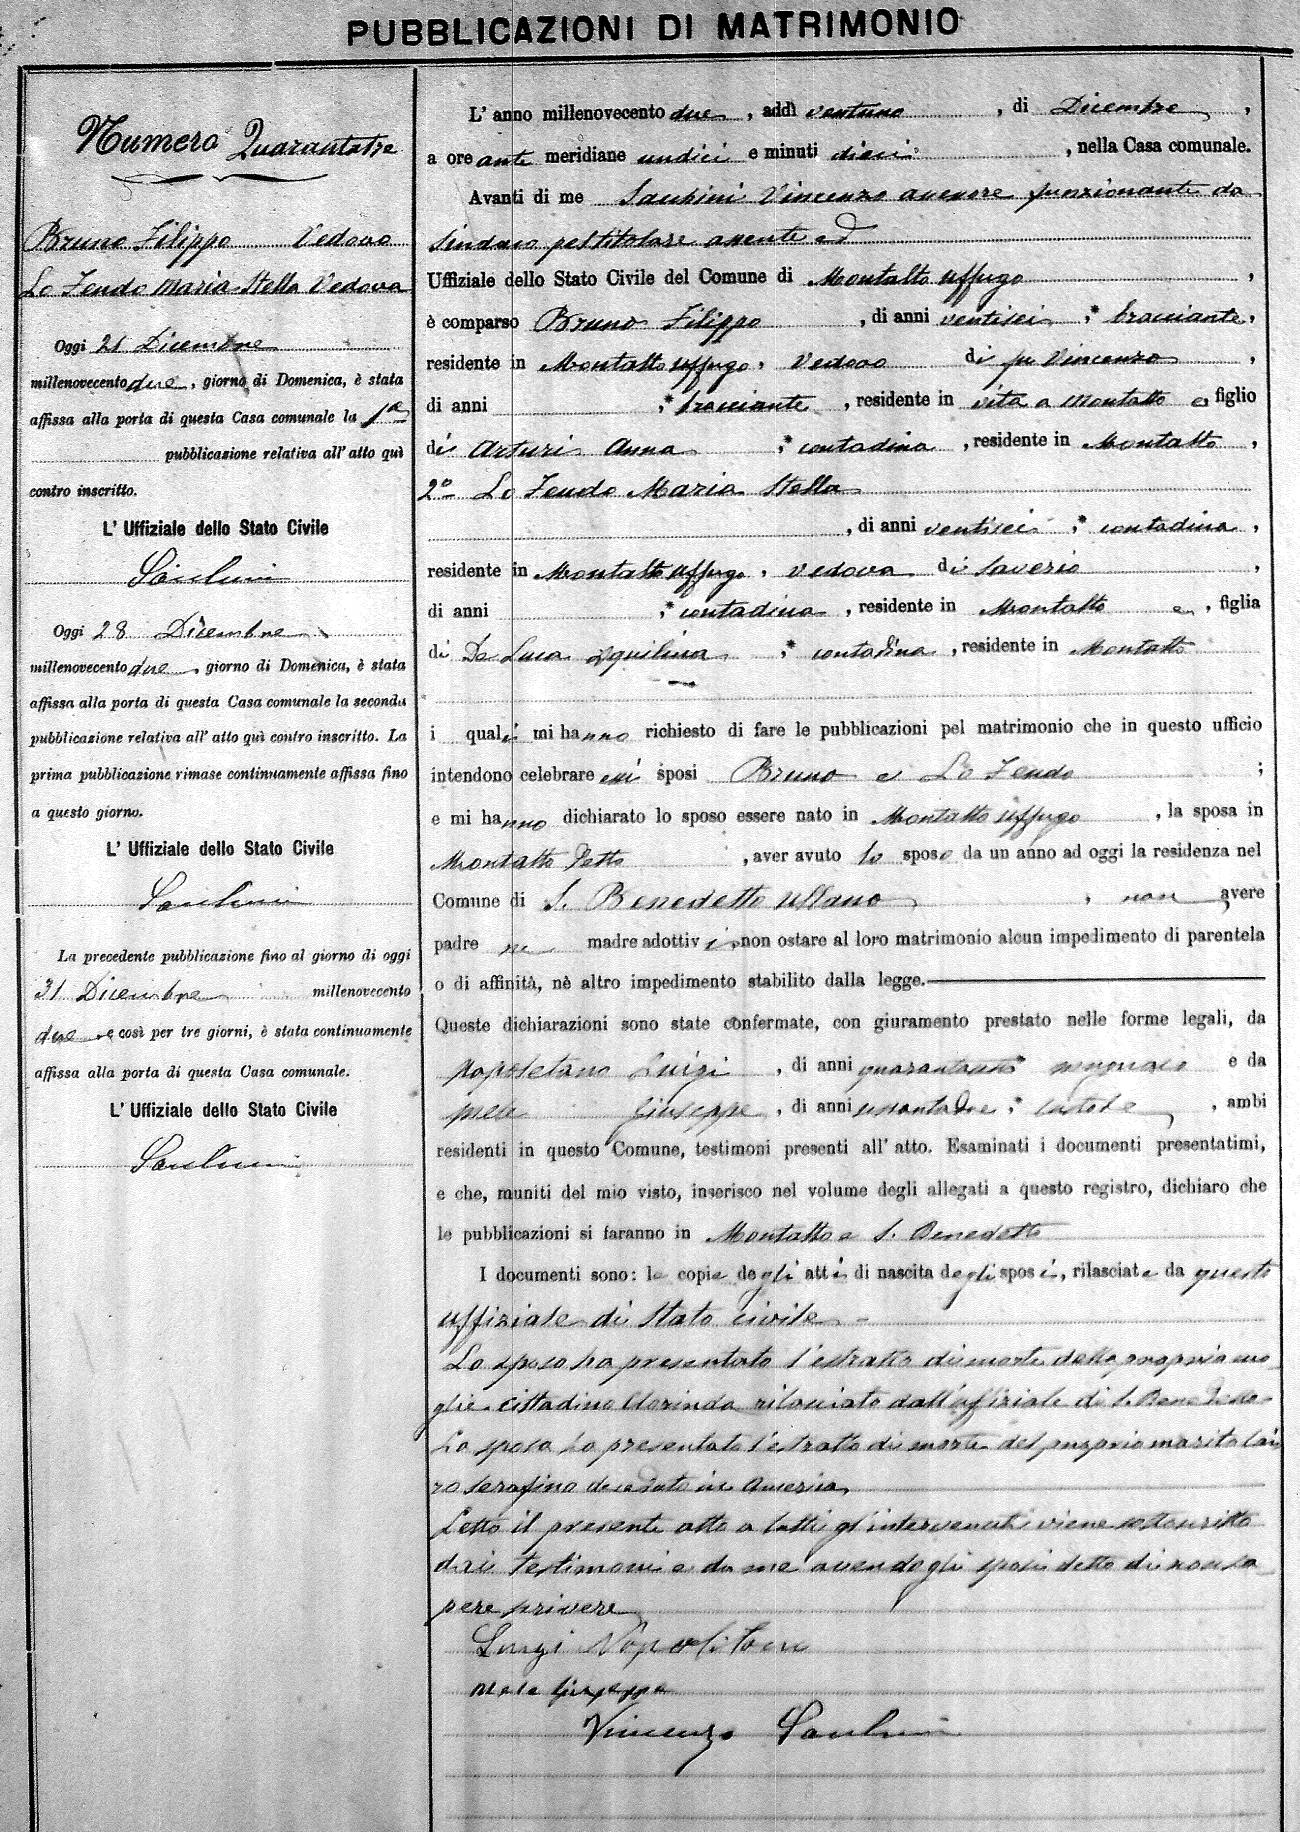 PUBBLICAZIONI DI MATRIMONIO
Numero Quarantatre
Bruno Filippo Vedovo
Lo Feudo Maria Stella Vedova
Oggi 21 Dicembre
millenovecento due, giorno di Domenica, è stata
affissa alla porta di questa Casa comunale la 1a
pubblicazione relativa all' atto quì
contro inscritto.
L' Uffiziale dello Stato Civile
Oggi 28 Dicembre
millenovecento due, giorno di Domenica, è stata
affissa alla porta di questa Casa comunale la seconda
pubblicazione relativa all' atto quì contro inscritto. La
prima pubblicazione rimase continuamente affissa fino
a questo giorno.
L' Uffiziale dello Stato Civile
La precedente pubblicazione fino al giorno di oggi
31 Dicembre millenovecento
due e così per tre giorni, è stata continuamente
affissa alla porta di questa Casa comunale.
L' Uffiziale dello Stato Civile
L' anno millenovecento due, addì ventuno, di Dicembre,
a ore ante meridiane undici e minuti dieci, nella Casa comunale.
Avanti di me Vincenzo assessore funzionante da
Sindaco pel titolare assente ed
Uffiziale dello Stato Civile del Comune di Montalto Uffugo,
è comparso Bruno Filippo, di anni ventisei, * bracciante,
residente in Montalto Uffugo, vedovo di fu Vincenzo,
di anni , * bracciante, residente in vita a Montalto e, figlio
di Arturi Anna , * contadina, residente in Montalto,
2o Lo Feudo Maria Stella
, di anni ventisei, * contadina,
residente in Montalto Uffugo, vedova di Saverio,
di anni , * contadino, residente in Montalto e, figlia
di De Luca Aquilina , * contadina, residente in Montalto
i quali mi hanno richiesto di fare le pubblicazioni pel matrimonio che in questo ufficio
intendono celebrare essi sposi Bruno e Lo Feudo ;
e mi hanno dichiarato lo sposo essere nato in Montalto Uffugo, la sposa in
Montalto detto, aver avuto lo sposo da un anno ad oggi la residenza nel
Comune di S. Benedetto Ullano, non avere
padre ne madre adottivi, non ostare al loro matrimonio alcun impedimento di parentela
o di affinità, nè altro impedimento stabilito dalla legge.
Queste dichiarazioni sono state confermate, con giuramento prestato nelle forme legali, da
Napoletano Luigi, di anni e da
Mele Giuseppe, di anni sessantadue, * , ambi
residenti in questo Comune, testimoni presenti all' atto. Esaminati i documenti presentatimi,
e che, muniti del mio visto, inserisco nel volume degli allegati a questo registro, dichiaro che
le pubblicazioni si faranno in Montalto e S. Benedetto
I documenti sono: le copie degli atti di nascita degli sposi, rilasciate da questo
uffiziale di Stato civile
Lo sposo ha presentato l'estratto di morte della propria mo
glie Cittadino Clorinda rilasciato dall'uffiziale di S. Benedetto
La sposa ha presentato l'estratto di morte del proprio marito
Serafino deceduto in America
Letto il presente atto a tutti gl'intervenuti viene sottoscritto
dai testimoni e da me avendo gli sposi detto di non sa
pere scrivere
Luigi Napolitano
Mele Giuseppe
Vincenzo